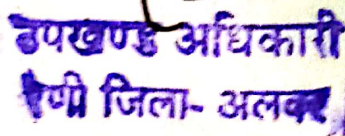 उपखण्ड अधिकारी
रैणी जिला- अलवर